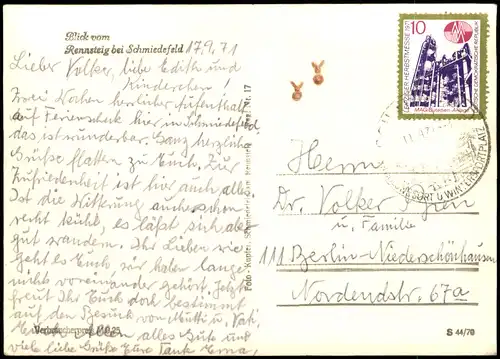 Blick vom
Rennsteig bei Schmiedefeld
17.9.71
Lieber Volker, liebe Edith und
Kinderchen!
Zwei Wochen herrlicher Aufenthalt
auf Ferienscheck hier in Schmiedefeld,
das ist wunderbar. Ganz herzliche
Grüße flattern zu Euch. Zur
Zufriedenheit ist hier auch alles.
Ist die Witterung auch schon
recht kühl, es läßt sich aber
gut wandern. Ihr Lieben wie
geht es Euch, wir haben lange
nichts voneinander gehört. Jetzt
freut Ihr Euch doch bestimmt
auf den Besuch von Mutti u. Vati.
Euch allen alles Gute und
viele liebe Grüße Eure Tante Erna,
Verbraucherpreis MDN 0,25
Foto-Kunze, Schmiedefeld am Rennsteig, Nr. 17
10
LEIPZIGER HERBSTMESSE 1971
DEUTSCHE DEMOKRATISCHE REPUBLIK
MAG-Butadien-Anlage
KURORT U. WINTERSPORTPLATZ
Herrn
Dr. Volker
u. Familie
111 Berlin-Niederschönhausen
Nordendstr. 67a
S 44/70